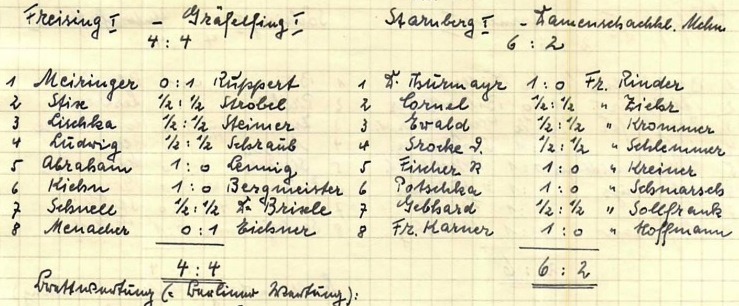 Freising I - Gräfelfing I Starnberg I - Damenschachkl. Mchn
4 : 4 6 : 2
1 Meiringer 0 : 1 Ruppert 1 Dr. Thurmayr 1 : 0 Fr. Rinder
2 Stix 1/2 : 1/2 Strobel 2 Cornel 1/2 : 1/2 " Ziehr
3 Lischka 1/2 : 1/2 Steimer 3 Ewald 1/2 : 1/2 " Krommer
4 Ludwig 1/2 : 1/2 Schraub 4 Srocke J. 1/2 : 1/2 " Schlemmer
5 Abraham 1 : 0 Lennig 5 Fischer R 1 : 0 " Kreiner
6 Kiehn 1 : 0 Bergmeister 6 Potschka 1 : 0 " Schmarsch
7 Schnell 1/2 : 1/2 Dr. Brixle 7 Gebhard 1/2 : 1/2 " Sollfrank
8 Menacher 0 : 1 Eichner 8 Fr. Karner 1 : 0 " Hoffmann
4 : 4 6 : 2
Brettwertung (= Berliner Wertung):